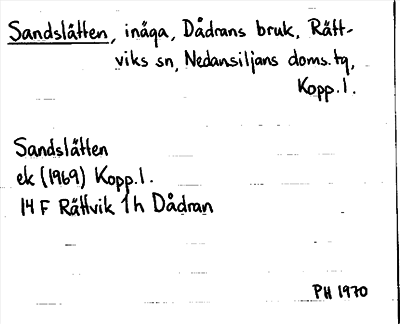 Sandslåtten, inäga, Dådrans bruk, Rätt-
viks sn, Nedansiljans doms. tg,
Kopp. l.
Sandslåtten
ek (1969) Kopp. l.
14 F Rättvik 1 h Dådran
PH 1970